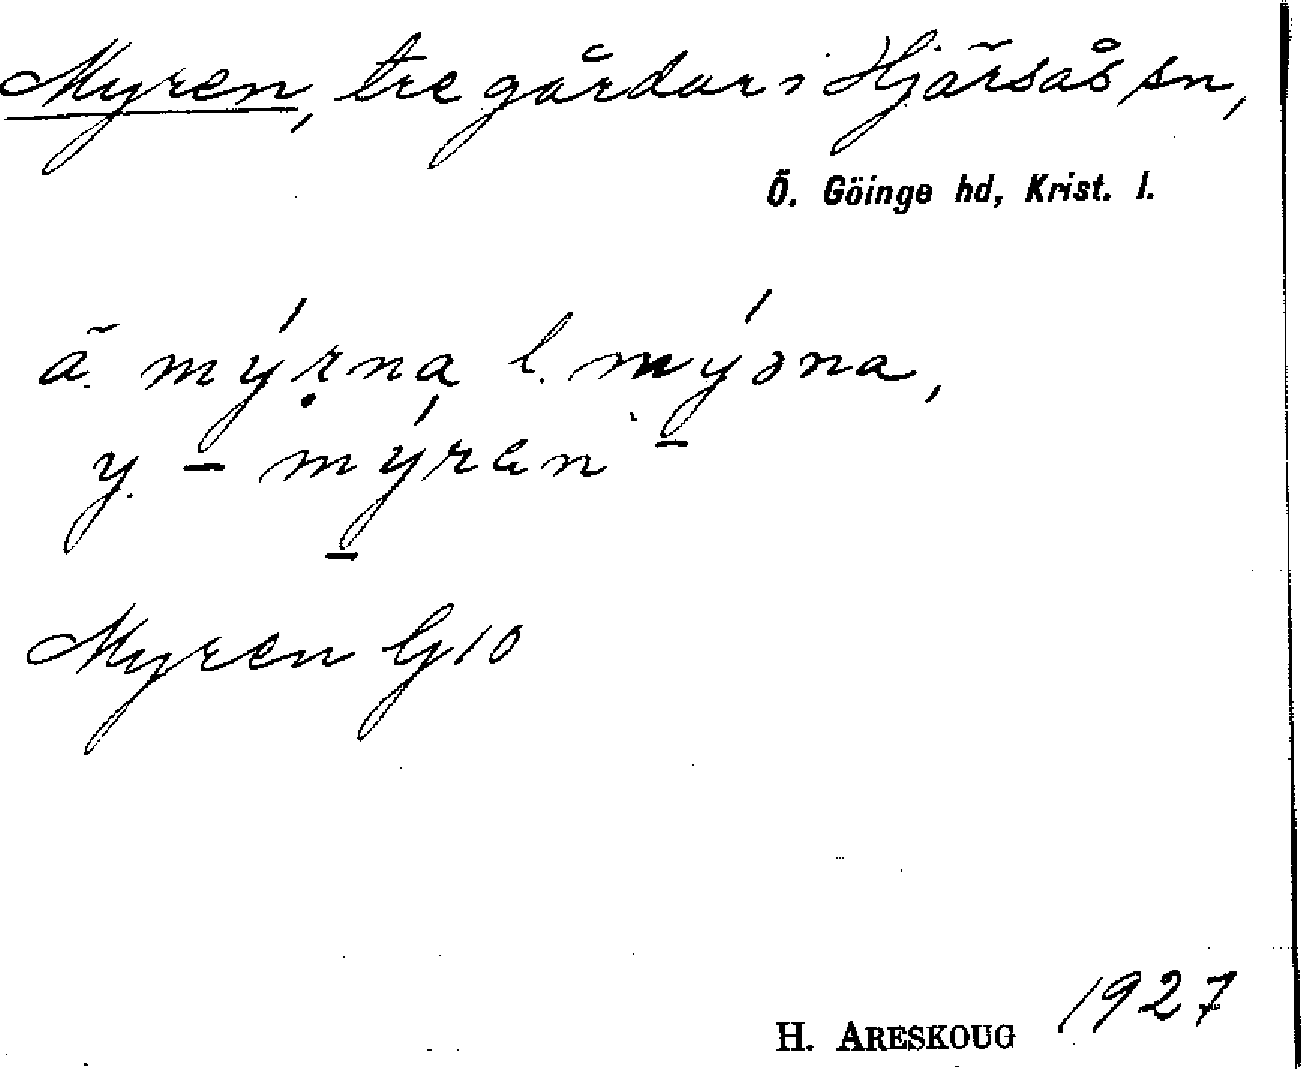 Myren, tre gårdar i Hjärsås sn,
Ö. Göinge hd, Krist. l.
ä. mýrna l. mýəna,
y. – mýrən
Myren G 10
H. ARESKOUG 1927